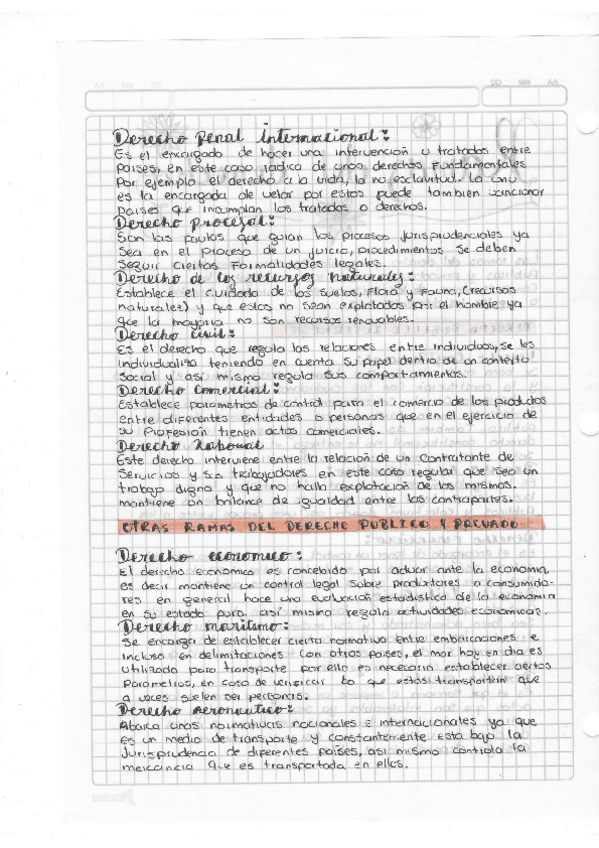 Derecho Penal Internacional:
Es el encargado de hacer una intervención u tratados entre
países, en este caso radica de unos derechos fundamentales
Por ejemplo el derecho a la vida, la no esclavitud. La onu
es la encargada de velar por estos puede tambien sancionar
países que incumplan los tratados o derechos.
Derecho procesal:
Son las pautas que guian los procesos jurisprudenciales ya
sea en el proceso de un juicio, procedimientos se deben
seguir ciertas formalidades legales.
Derecho de los recursos naturales:
Establece el cuidado de los suelos, flora y fauna, (recursos
naturales) y que estos no sean explotados por el hombre ya
que la mayoria no son recursos renovables.
Derecho civil:
Es el derecho que regula las relaciones entre individuos, se les
individualiza teniendo en cuenta su papel dentro de un contexto
social y así mismo regula sus comportamientos.
Derecho Comercial:
Establece parametros de control para el comercio de los productos
entre diferentes entidades o personas que en el ejercicio de
su Profesión tienen actos comerciales.
Derecho Laboral
Este derecho interviene entre la relación de un contratante de
servicios y sus trabajadores en este caso regular que sea un
trabajo digno y que no halla explotación de los mismos.
mantiene un balance de igualdad entre las contrapartes.
OTRAS RAMAS DEL DERECHO PUBLICO Y PRIVADO
Derecho economico:
El derecho economico es concebido por actuar ante la economia
es decir mantiene un control legal sobre productores o consumido-
res en general hace una evaluación estadistica de la economia
en su estado puro. así mismo regula actividades economicas.
Derecho maritimo:
Se encarga de establecer cierta normativa entre embarcaciones e
incluso en delimitaciones con otros paises, el mar hoy en dia es
utilizado para transporte por ello es necesario establecer ciertos
Parametros, en caso de verificar lo que estas transportan que
a veces suelen ser personas.
Derecho aeronautico:
Abarca unas normativas nacionales e internacionales ya que
es un medio de transporte y constantemente esta bajo la
Jurisprudencia de diferentes países, así mismo controla la
mercancia que es transportada en ellos.